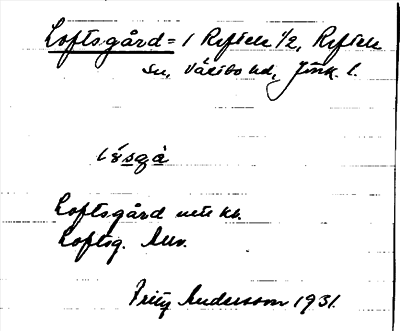 Loftsgård = 1 Reftele 1/2, Reftele
sn, Västbo hd, Jönk. l.
lösgå
Loftsgård utt. kb.
Loftsg. Auv.
Fritz Andersson 1931.